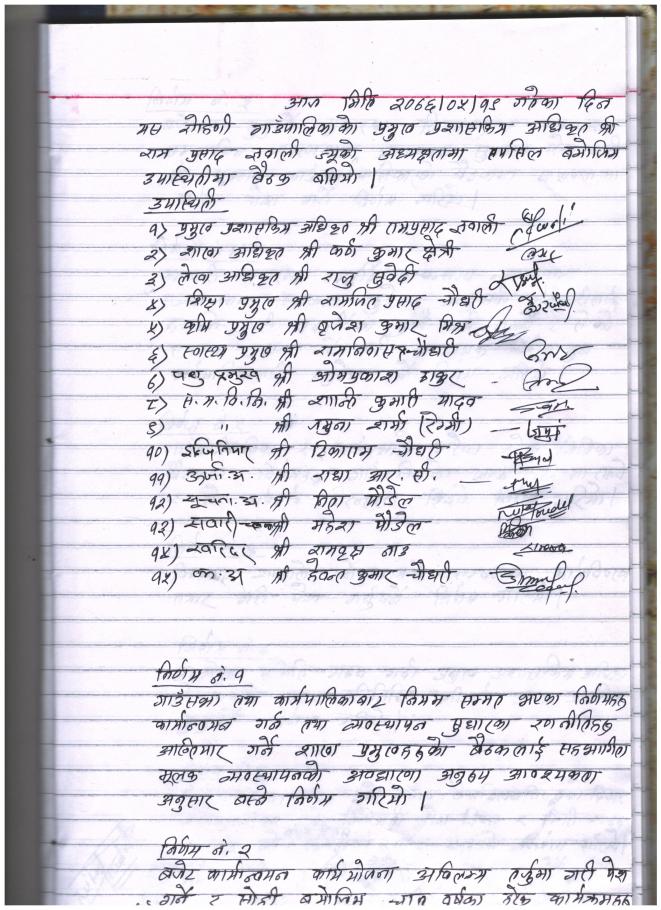 आज मिति २०७६/०५/१९ गतेका दिन
यस रोहिणी गाउँपालिकाको प्रमुख प्रशासकिय अधिकृत श्री
राम प्रसाद ज्ञवाली ज्यूको अध्यक्षतामा तपसिल बमोजिम
उपास्थितीमा बैठक बसियो ।
उपास्थिती
१> प्रमुख प्रशासकिय अधिकृत श्री रामप्रसाद ज्ञवाली
२> शाखा अधिकृत श्री कर्ण कुमार क्षेत्री
३> लेखा अधिकृत श्री राजु सुवेदी
४> शिक्षा प्रमुख श्री रामजित प्रसाद चौधरी
५> कृषि प्रमुख श्री बृजेश कुमार मिश्र
६> स्वास्थ्य प्रमुख श्री रामनिवास चौधरी
७> पशु प्रमुख श्री ओमप्रकाश ठाकुर -
८> स.म.वि.नि. श्री शान्ति कुमारी यादव
९> " श्री जमुना शर्मा (रेग्मी) -
१०) इन्जिनियर श्री टिकाराम चौधरी
११) ऊर्जा.अ. श्री राधा आर.सी. -
१२) सूचना.अ. श्री मिना पौडेल
१३) सवारी श्री महेश पौडेल
१४) खरिदार श्री रामबृक्ष नाउ
१५) का.अ श्री हेमन्त कुमार चौधरी
निर्णय नं. १
गाउँसभा तथा कार्यपालिकाबाट नियम सम्मत भएका निर्णयहरु
कार्यान्वयन गर्न तथा व्यवस्थापन सुधारका रणनीतिहरु
अख्तियार गर्न शाखा प्रमुखहरुको बैठकलाई सहभागिता
मूलक व्यवस्थापनको अवधारणा अनुरुप आवश्यकता
अनुसार बस्ने निर्णय गरियो ।
निर्णय नं. २
बजेट कार्यान्वयन कार्ययोजना अविलम्ब तर्जुमा गरी पेश
गर्ने र सोही बमोजिम चालु वर्षका हरेक कार्यक्रमहरु